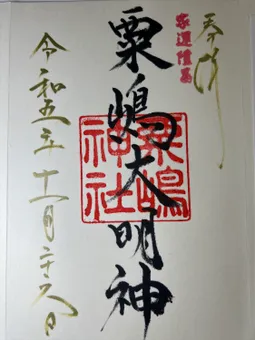 奉拝
家運隆昌
粟嶋大明神
粟嶋神社
令和五年十一月二十六日